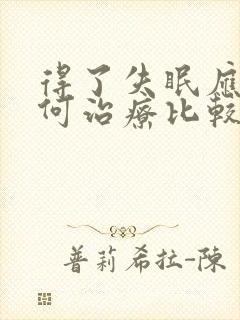 得了失眠應
何治療比較
普莉希拉-陳